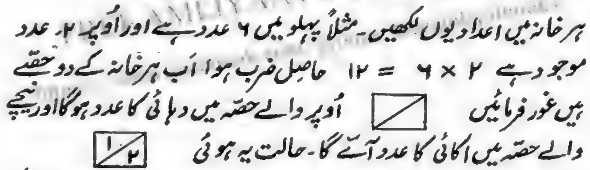 ہر خانہ میں اعداد یوں لکھیں۔ مثلاً پہلو میں ۶ عدد ہے اور اُوپر ۲۔ عدد
موجود ہے ۲ × ۶ = ۱۲ حاصل ضرب ہوا اَب ہر خانہ کے دو حصّے
ہیں غور فرمائیں اُوپر والے حصّہ میں دہائی کا عدد ہوگا اور نیچے
والے حصّہ میں اکائی کا عدد آئے گا۔ حالت یہ ہوئی ۱ ۲